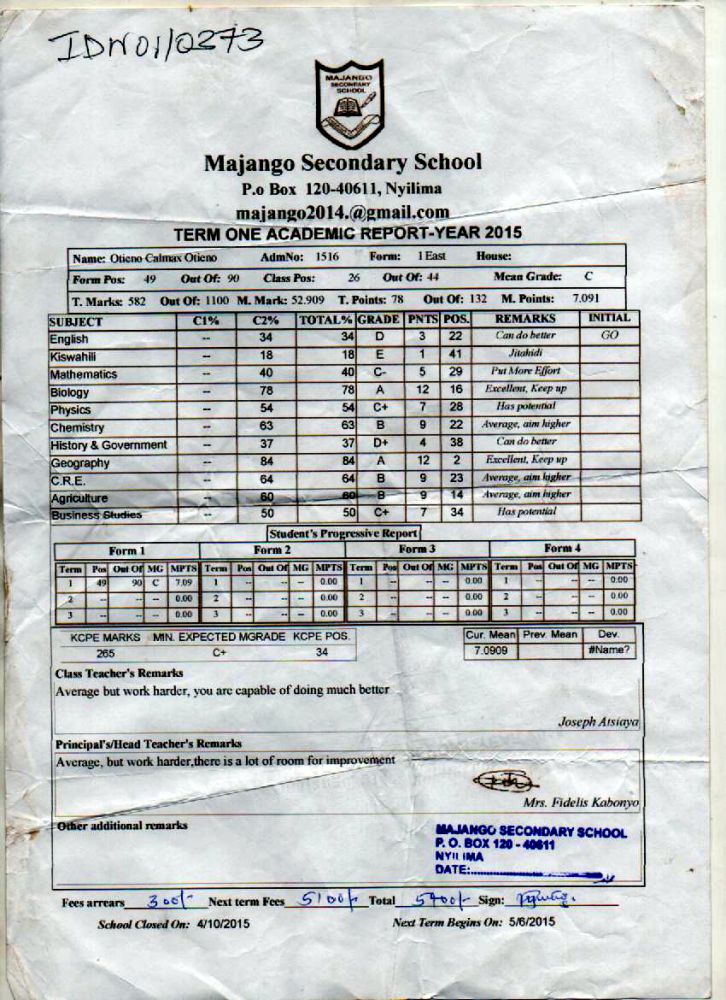 IDN01/0273
MAJANGO
SECONDARY
SCHOOL
Majango Secondary School
P.o Box 120-40611, Nyilima
majango2014.@gmail.com
TERM ONE ACADEMIC REPORT-YEAR 2015
Name: Otieno Calmax Otieno AdmNo: 1516 Form: 1 East House:
Form Pos: 49 Out Of: 90 Class Pos: 26 Out Of: 44 Mean Grade: C
T. Marks: 582 Out Of: 1100 M. Mark: 52.909 T. Points: 78 Out Of: 132 M. Points: 7.091
SUBJECT C1% C2% TOTAL% GRADE PNTS POS. REMARKS INITIAL
English -- 34 34 D 3 22 Can do better GO
Kiswahili -- 18 18 E 1 41 Jitahidi
Mathematics -- 40 40 C- 5 29 Put More Effort
Biology -- 78 78 A 12 16 Excellent, Keep up
Physics -- 54 54 C+ 7 28 Has potential
Chemistry -- 63 63 B 9 22 Average, aim higher
History & Government -- 37 37 D+ 4 38 Can do better
Geography -- 84 84 A 12 2 Excellent, Keep up
C.R.E. -- 64 64 B 9 23 Average, aim higher
Agriculture -- 60 60 B 9 14 Average, aim higher
Business Studies -- 50 50 C+ 7 34 Has potential
Student's Progressive Report
Form 1 Form 2 Form 3 Form 4
Term Pos Out Of MG MPTS Term Pos Out Of MG MPTS Term Pos Out Of MG MPTS Term Pos Out Of MG MPTS
1 49 90 C 7.09 1 -- -- -- 0.00 1 -- -- -- 0.00 1 -- -- -- 0.00
2 -- -- -- 0.00 2 -- -- -- 0.00 2 -- -- -- 0.00 2 -- -- -- 0.00
3 -- -- -- 0.00 3 -- -- -- 0.00 3 -- -- -- 0.00 3 -- -- -- 0.00
KCPE MARKS MIN. EXPECTED MGRADE KCPE POS. Cur. Mean Prev. Mean Dev.
265 C+ 34 7.0909 #Name?
Class Teacher's Remarks
Average but work harder, you are capable of doing much better
Joseph Atsiaya
Principal's/Head Teacher's Remarks
Average, but work harder,there is a lot of room for improvement
Mrs. Fidelis Kabonyo
Other additional remarks
MAJANGO SECONDARY SCHOOL
P. O. BOX 120 - 40611
NYILIMA
DATE:
Fees arrears 300/- Next term Fees 5100/- Total 5400/- Sign:
School Closed On: 4/10/2015 Next Term Begins On: 5/6/2015